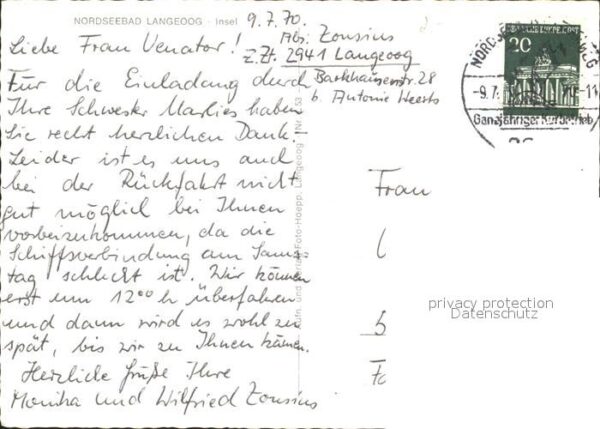 NORDSEEBAD LANGEOOG - Insel
9.7.70.
Abs. Zousius
z.Zt. 2941 Langeoog
Barkhausenstr. 28
b. Antonie Heerts
Liebe Frau Venator!
Für die Einladung durch
Ihre Schwester Marlies haben
Sie recht herzlichen Dank!
Leider ist es uns auch
bei der Rückfahrt nicht
gut möglich bei Ihnen
vorbeizukommen, da die
Schiffsverbindung am Sams-
tag schlecht ist. Wir können
erst um 12⁰⁰ h überfahren
und dann wird es wohl zu
spät, bis wir zu Ihnen kämen.
Herzliche Grüße Ihre
Monika und Wilfried Zousius
Foto-Hoepp, Langeoog
Nr. 153
Frau
privacy protection
Datenschutz
20
-9.7.
Ganzjähriger Kurbetrieb